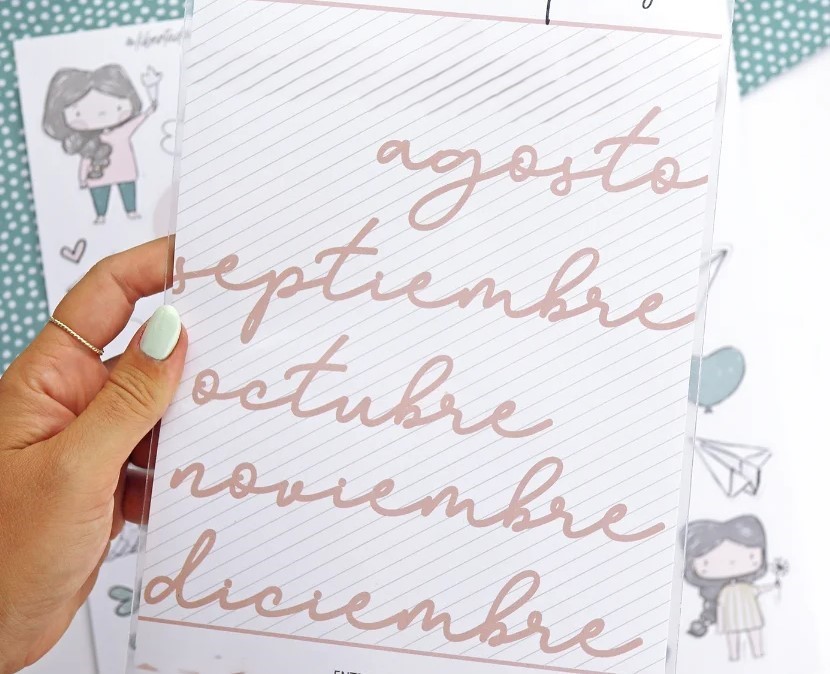 agosto
septiembre
octubre
noviembre
diciembre